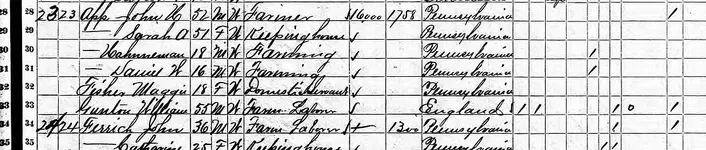 28 23 23 App John H 52 M W Farmer $16000 1758 Pennsylvania 1 28
29 — Sarah A 51 F W Keeping house Pennsylvania 29
30 — Hahnneman 18 M W Farming Pennsylvania 1 30
31 — Daniel W 16 M W Farming Pennsylvania 1 31
32 Fisher Maggie 18 F W Domestic Servant Pennsylvania 32
33 William 55 M W Farm Labor England 1 1 1 0 1 33
34 24 24 John 36 M W Farm Labor 1300 Pennsylvania 1 1 34
35 — Catharine 25 F W Keeping house Pennsylvania 1 1 35